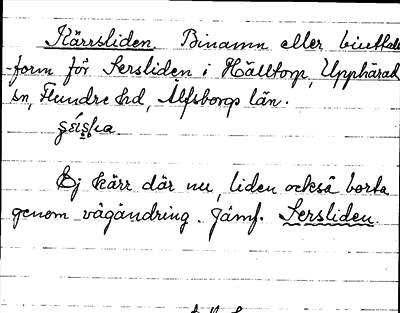 Kärrsliden. Binamn eller biuttals
-form för Sersliden i Hälltorp, Upphärad
sn, Flundre hd, Älfsborgs län.
Ej kärr där nu, liden också borta
genom vägändring. Jämf. Sersliden.